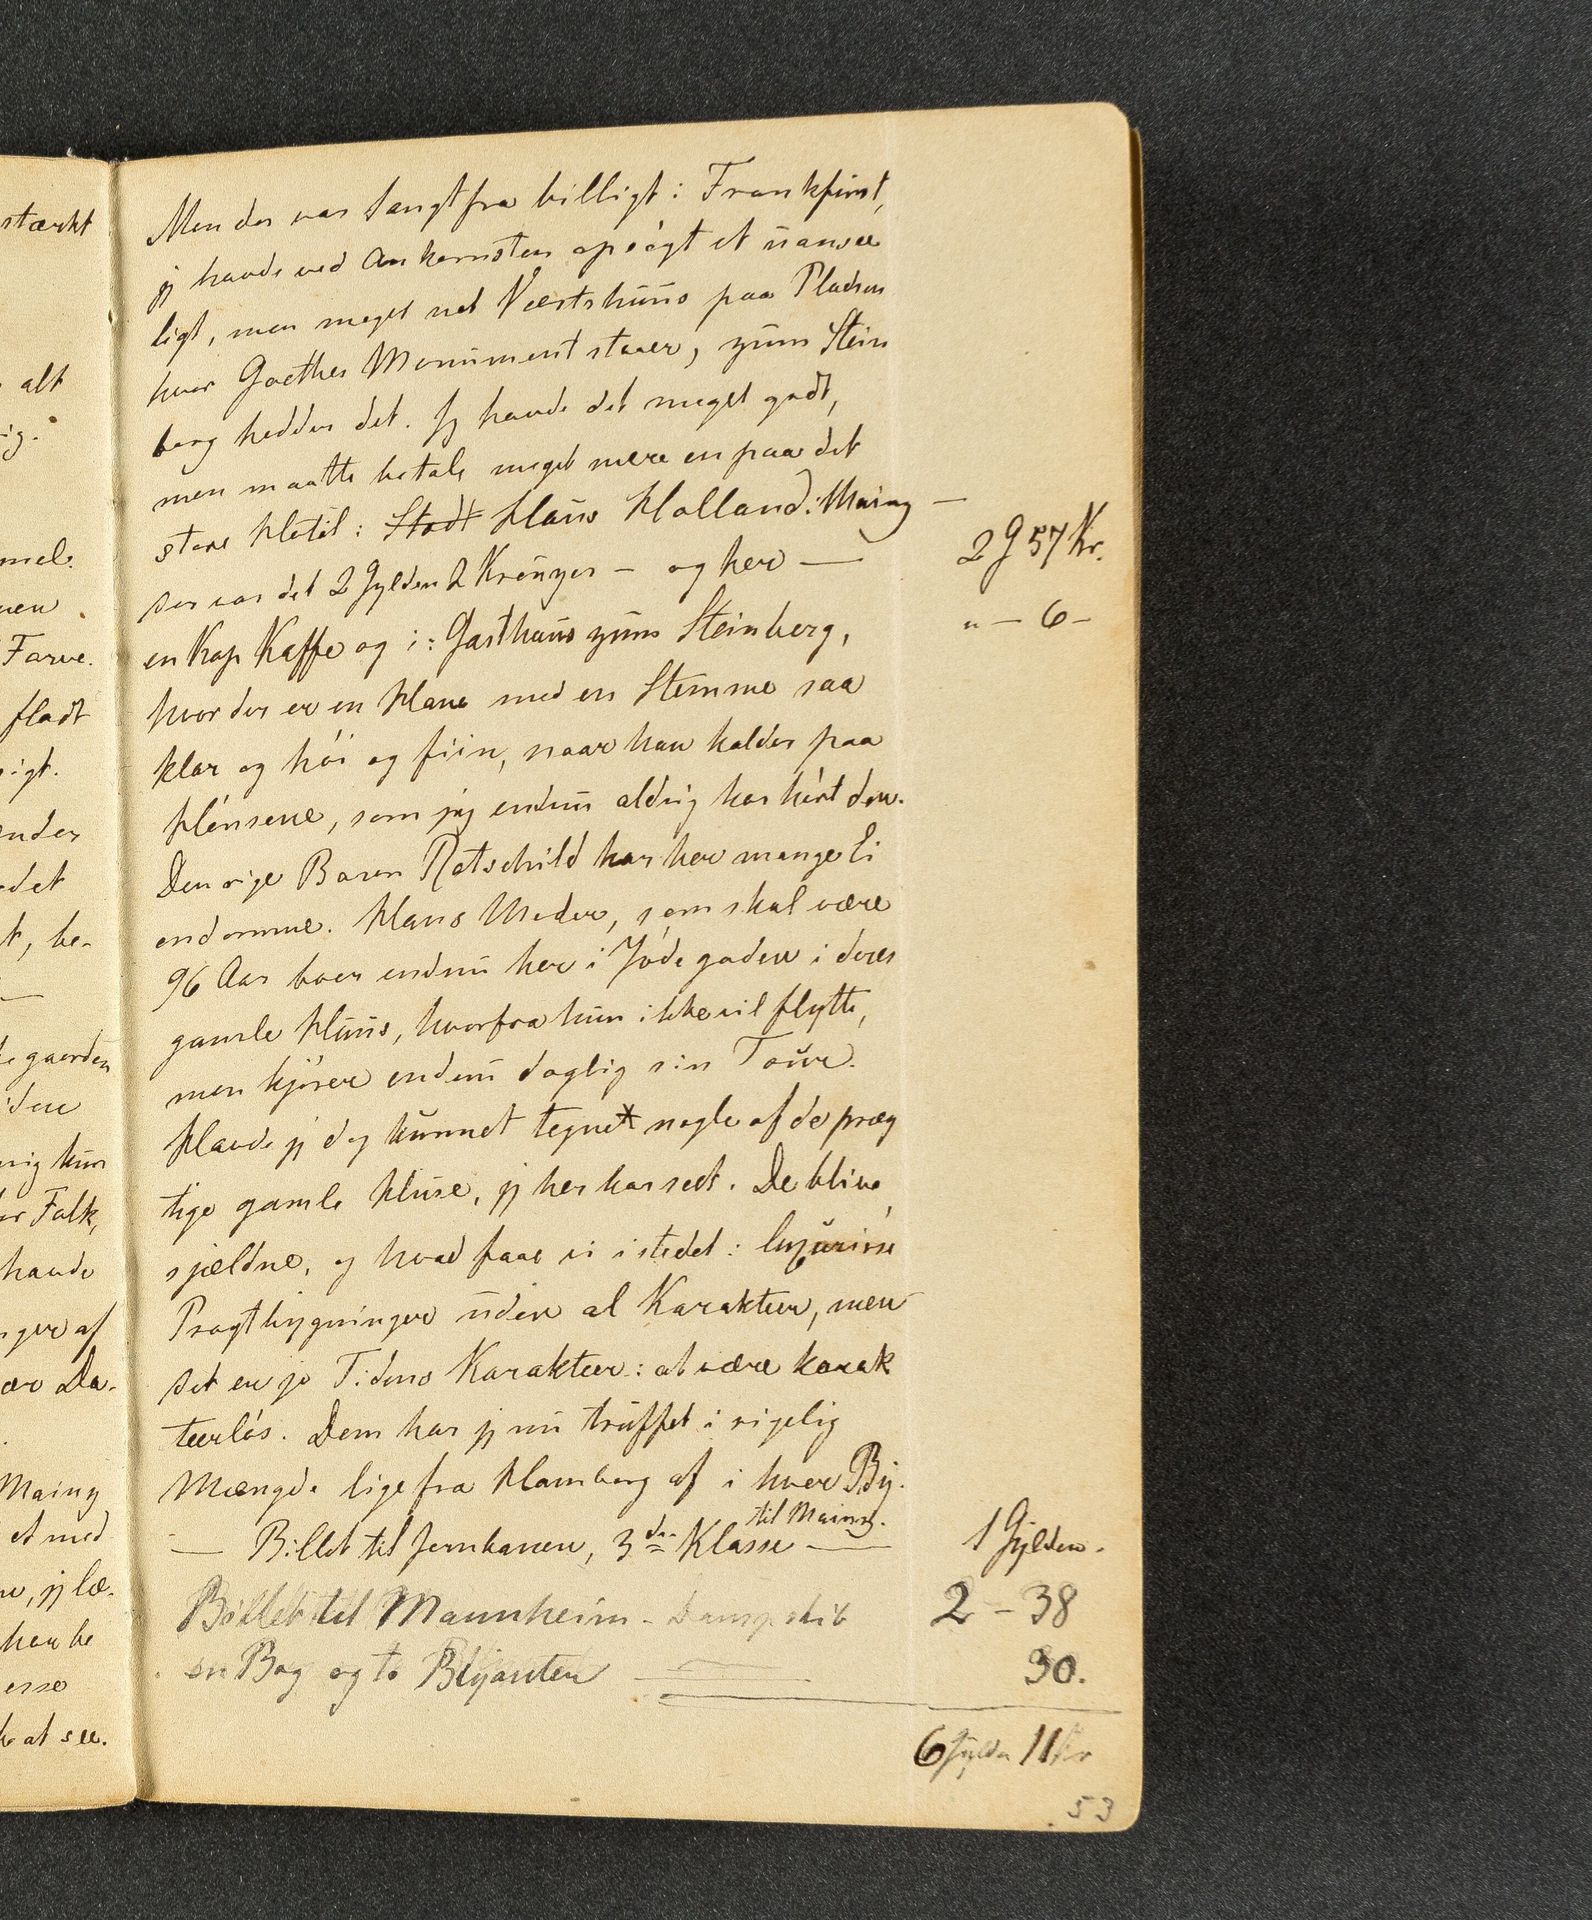 stærkt
alt
ig.
mel.
nen
Farve.
fladt
sigt.
ender
edet
t, be-
gaarden
iden
mig kun
or Folk,
havde
nger af
ær Da-
Mainz
et med
, jeg læ-
har be
esse
at see.
Men der var langtfra billigt i Frankfurt,
jeg havde ved Ankomsten opsögt et uansee
ligt, men meget net Værtshuus paa Pladsen
hvor Goethes Monument staaer, zum Stein
berg hedder det. Jeg havde det meget godt,
men maatte betale meget mere en paa det
store Hotel: Stadt Haus Holland i Mainz —
der var det 2 Gylden 2 Kreuzer — og her — 2 G 57 Kr.
en Kop Kaffe og i: Gasthaus zum Steinberg, „ — 6 —
hvor der er en Hane med en Stemme saa
klar og höi og fiin, naar han kalder paa
Hönsene, som jeg endnu aldrig har hört den.
Den rige Baron Rotschild har her mange Ei
endomme. Hans Moder, som skal være
96 Aar boer endnu her i Jödegaden i deres
gamle Huus, hvorfra hun ikke vil flytte,
men kjörer endnu daglig sin Tour.
Havde jeg dog kunnet tegnet nogle af de præg
tige gamle Huse, jeg her har seet. De blive
sjældne, og hvad faae vi istedet: luxuriøse
Pragtbygninger uden al Karakteer, men
det er jo Tidens Karakteer: at være karak
teerlös. Dem har jeg nu truffet i rigelig
Mængde lige fra Hamborg af i hver By.
til Mainz.
— Billet til Jernbanen, 3die Klasse — 1 Gylden.
Billet til Mannheim - Dampskib 2 — 38
en Bog og to Blyanter — 30.
6 Gylden 11 Kr
53